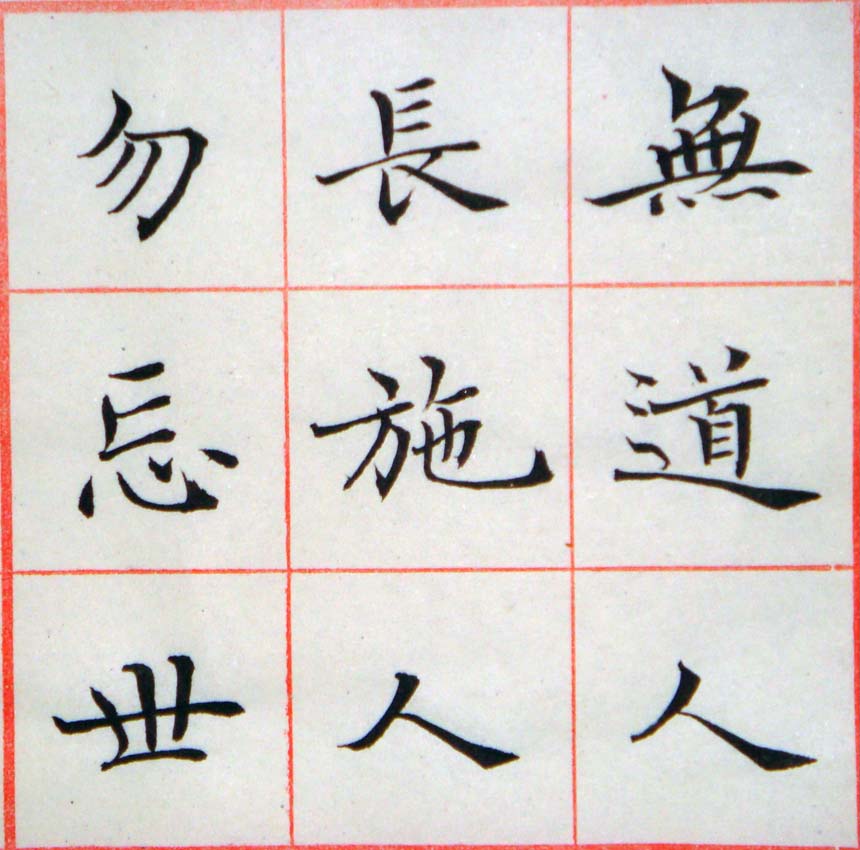 無道人
長施人
勿忘世